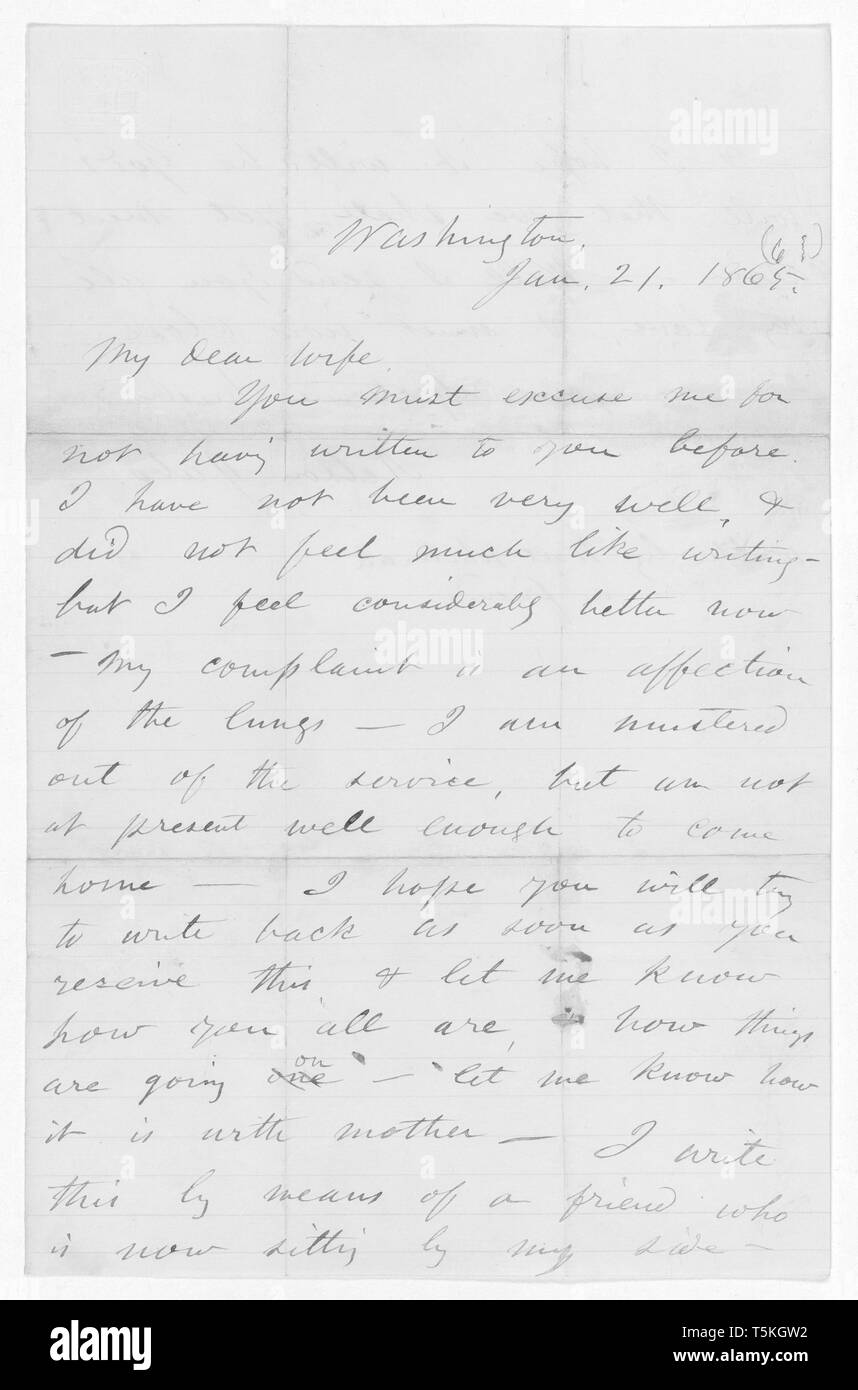 Washington.
(6 )
Jan. 21. 1865.
My dear wife.
You must excuse me for
not havig written to you before.
I have not been very well, &
did not feel much like writing –
but I feel considerably better now
– My complaint is an affection
of the lungs – I am mustered
out of the service, but am not
at present well enough to come
home – I hope you will try
to write back as soon as you
receive this & let me know
how you all are, how things
are going one on – let me know how
it is with mother – I write
this by means of a friend who
is now sittig by my side –
alamy
a
alamy
a
alamy
a
alamy
alamy
Image ID: T5KGW2
www.alamy.com